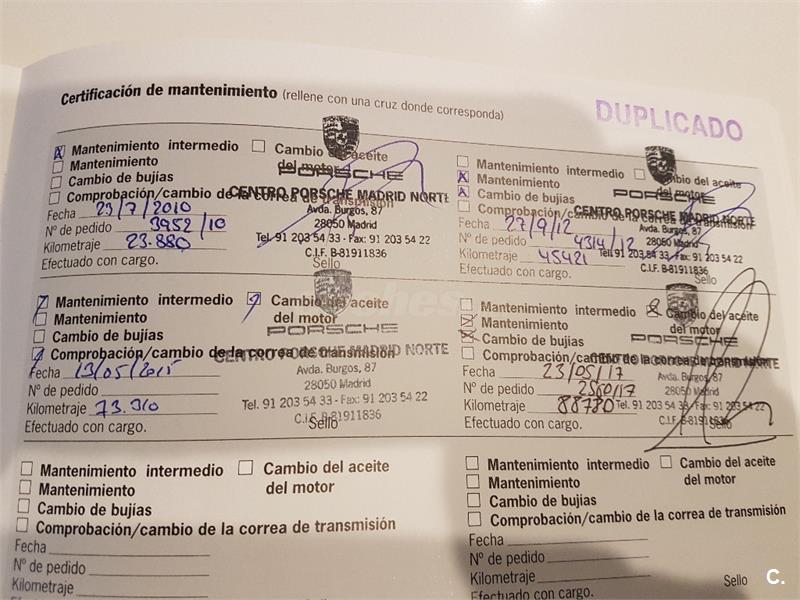 Certificación de mantenimiento (rellene con una cruz donde corresponda)
DUPLICADO
Mantenimiento intermedio
Cambio de aceite
Mantenimiento
del motor
Cambio de bujías
PORSCHE
Comprobación/cambio de la correa de transmisión
CENTRO PORSCHE MADRID NORTE
Fecha 23/7/2010
Avda. Burgos, 87
Nº de pedido 3952/10
28050 Madrid
Kilometraje 23.880
Tel. 91 203 54 33 - Fax: 91 203 54 22
C.I.F. B-81911836
Efectuado con cargo.
Sello
Mantenimiento intermedio
Cambio de aceite
Mantenimiento
del motor
Cambio de bujías
PORSCHE
Comprobación/cambio de la correa de transmisión
CENTRO PORSCHE MADRID NORTE
Fecha 27/9/12
Avda. Burgos, 87
Nº de pedido 4314/12
28050 Madrid
Kilometraje 45421
Tel. 91 203 54 33 - Fax: 91 203 54 22
C.I.F. B-81911836
Efectuado con cargo.
Sello
Mantenimiento intermedio
Cambio del aceite
Mantenimiento
del motor
Cambio de bujías
PORSCHE
Comprobación/cambio de la correa de transmisión
CENTRO PORSCHE MADRID NORTE
Fecha 13/05/2015
Avda. Burgos, 87
Nº de pedido
28050 Madrid
Kilometraje 73.310
Tel. 91 203 54 33 - Fax: 91 203 54 22
C.I.F. B-81911836
Efectuado con cargo.
Sello
Mantenimiento intermedio
Cambio del aceite
Mantenimiento
del motor
Cambio de bujías
PORSCHE
Comprobación/cambio de la correa de transmisión
CENTRO PORSCHE MADRID NORTE
Fecha 23/05/17
Avda. Burgos, 87
Nº de pedido 2560/17
28050 Madrid
Kilometraje 88780
Tel. 91 203 54 33 - Fax: 91 203 54 22
C.I.F. B-81911836
Efectuado con cargo.
Sello
Mantenimiento intermedio
Cambio del aceite
Mantenimiento
del motor
Cambio de bujías
Comprobación/cambio de la correa de transmisión
Fecha
Nº de pedido
Kilometraje
Efectuado con cargo.
Mantenimiento intermedio
Cambio del aceite
Mantenimiento
del motor
Cambio de bujías
Comprobación/cambio de la correa de transmisión
Fecha
Nº de pedido
Kilometraje
Sello
Efectuado con cargo.
C.